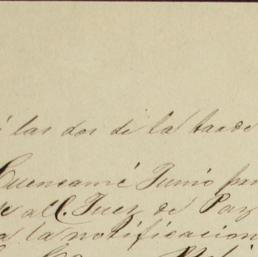 á las dos de la tarde
Cuencamé Junio
al C. Juez de Paz
a la notificacion